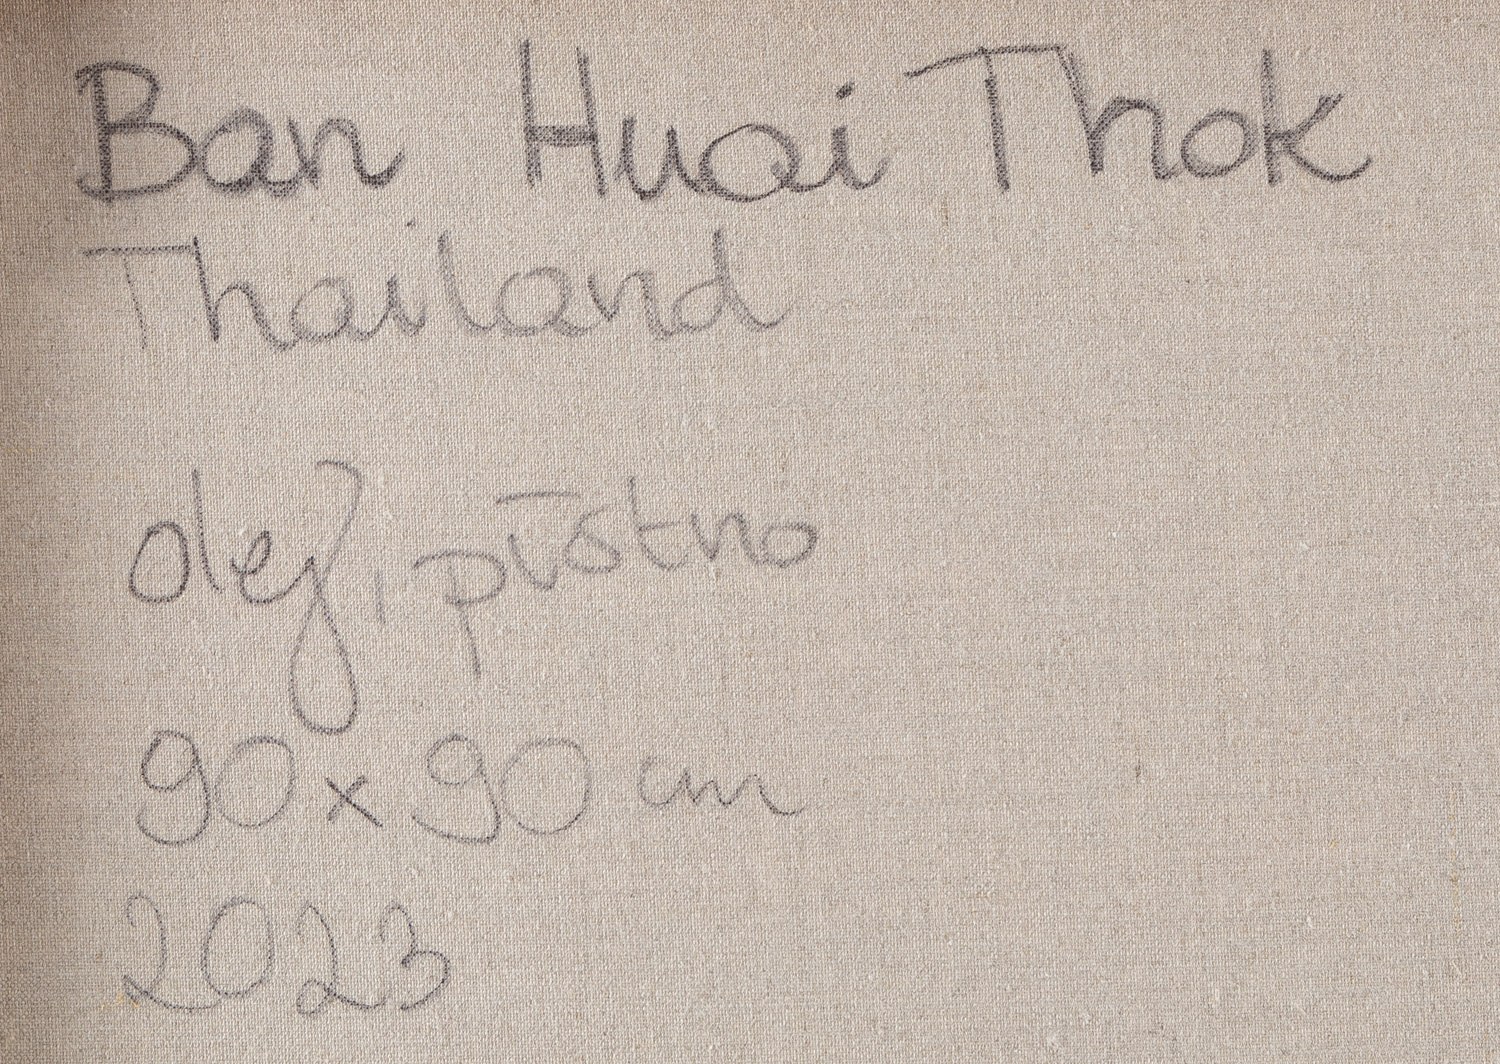 Ban Huai Thok
Thailand
olej, płótno
90 x 90 cm
2023